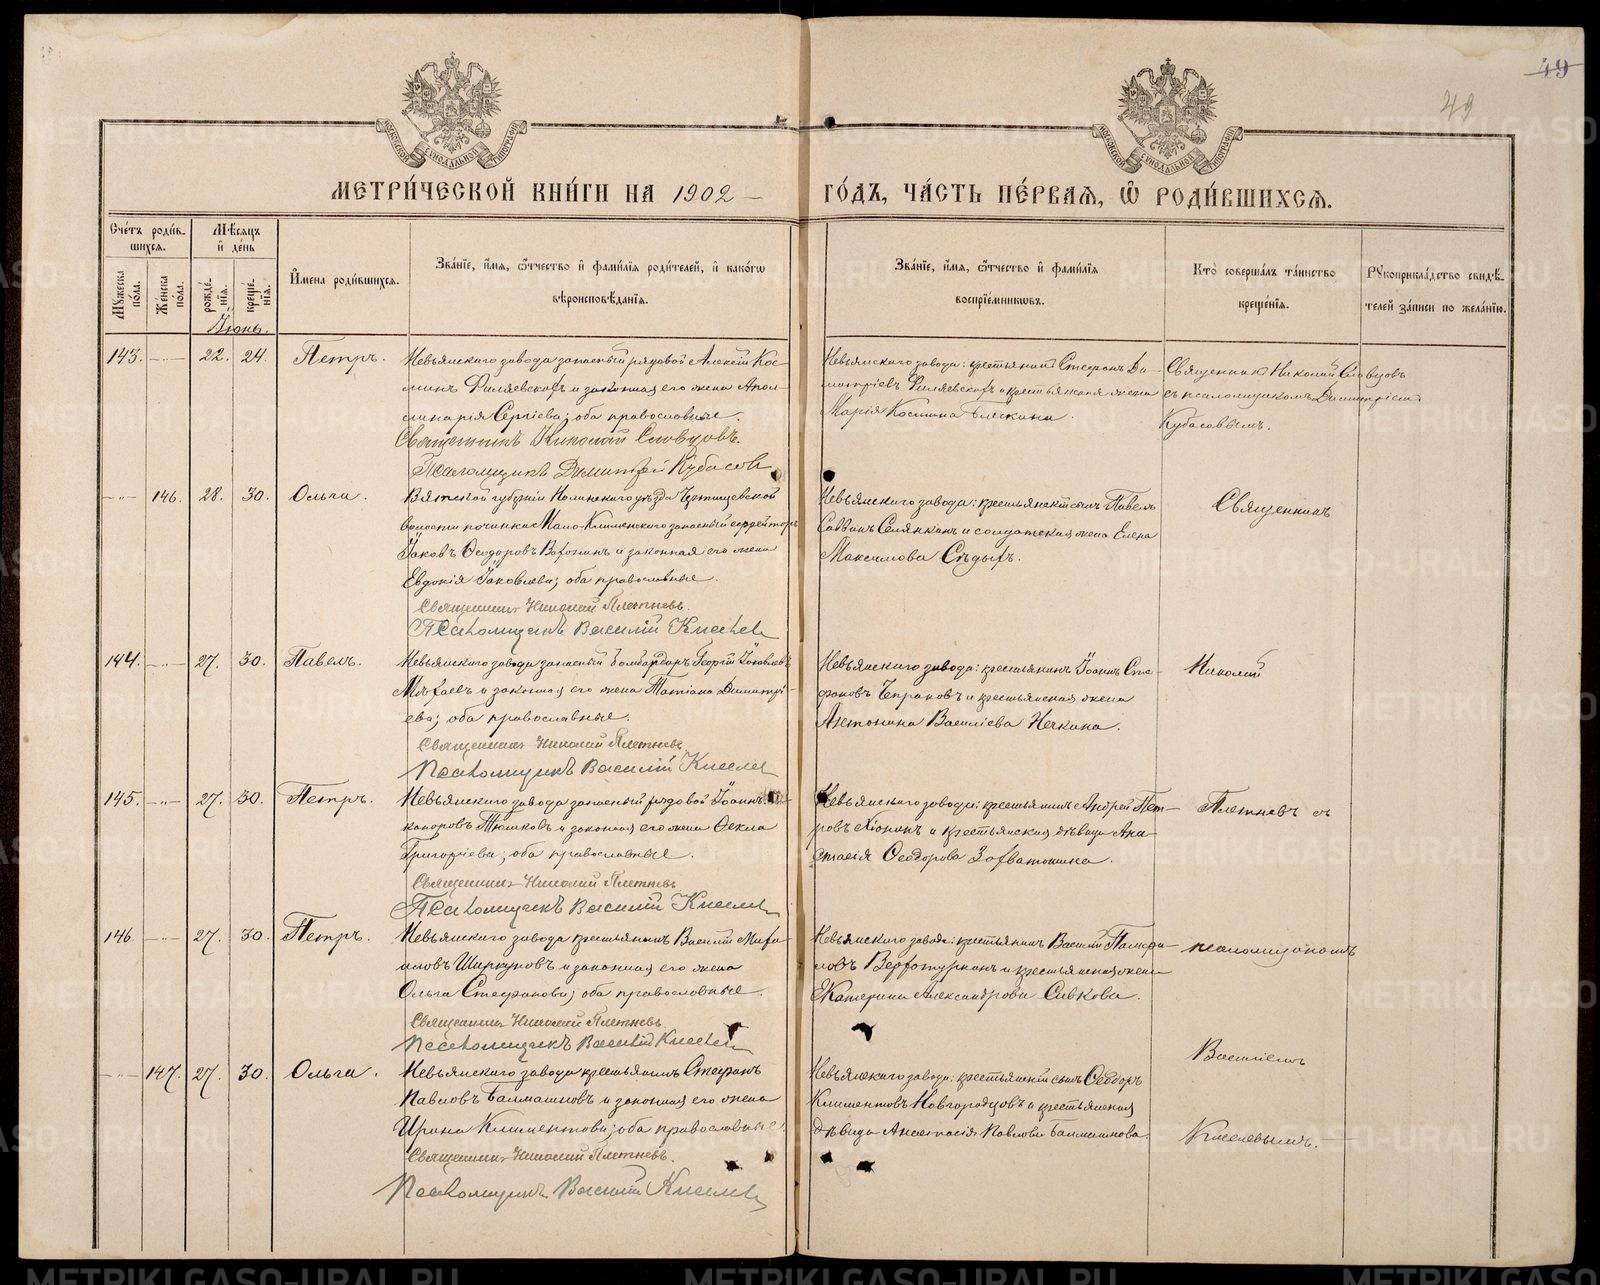 49
49
МОСКОВСКОЙ СѴНОДАЛЬНОЙ ТИПОГРАФІИ
МОСКОВСКОЙ СѴНОДАЛЬНОЙ ТИПОГРАФІИ
МЕТРИ́ЧЕСКОЙ КНИ́ГИ НА 1902 — ГО́ДЪ, ЧА́СТЬ ПЕ́РВАЯ, Ѿ РОДИ́ВШИХСѦ.
Сче́тъ роди́в-
шихся.
Мꙋ́жеска по́ла.
Же́нска по́ла.
Мѣ́сяцъ и҆ де́нь
рожде́нія.
креще́нія.
Іюнь.
И҆мена роди́вшихся.
Зва́ніе, и҆́мя, ѻ҆́тчество и҆ фами́лїя роди́телей, и҆ како́гѡ
вѣроисповѣ́данїя.
Зва́ніе, и҆́мя, ѻ҆́тчество и҆ фами́лїя
воспрїе́мникѡвъ.
Кто̀ соверша́лъ та́инство
креще́нїя.
Рꙋкоприкла́дство свидѣ́-
телей за́писи по жела́нїю.
143. —"— 22. 24. Петръ.
Невьянскаго завода запасный рядовой Алексій Кос-
минъ Филяевскохъ и законная его жена Апол-
линарія Сергіева; оба православные.
Священникъ Николай Словцовъ.
Псаломщикъ Димитрій Кубасовъ
Невьянскаго завода: крестьянинъ Стефанъ Ди-
митріевъ Филяевскохъ и крестьянская жена
Марія Космина Глескина.
Священникъ Николай Словцовъ
съ псаломщикомъ Димитріемъ
Кубасовымъ.
—"— 146. 28. 30. Ольга.
Вятской губерніи Нолинскаго уѣзда
волости починка Мало-Климинскаго запасный ефрейторъ
Іаковъ Ѳеодоровъ и законная его жена
Евдокія Іаковлева; оба православные.
Священникъ Николай Плетневъ.
Псаломщикъ Василій Киселевъ
Невьянскаго завода: крестьянскій сынъ Павелъ
Саввинъ Селянкинъ и солдатская жена Елена
Максимова Сѣдыхъ.
Священникъ
144. —"— 27. 30. Павелъ.
Невьянскаго завода запасный бомбардиръ Георгій Іаковлевъ
и законная его жена Татіана Димитрі-
ева; оба православные.
Священникъ Николай Плетневъ
Псаломщикъ Василій Киселевъ
Невьянскаго завода: крестьянинъ Іоаннъ Сте-
фановъ Чепраковъ и крестьянская жена
Антонина Василіева Нечкина.
Николай
145. —"— 27. 30. Петръ.
Невьянскаго завода запасный рядовой Іоаннъ
каноровъ Тюликовъ и законная его жена Ѳекла
Григоріева; оба православные.
Священникъ Николай Плетневъ
Псаломщикъ Василій Киселевъ
Невьянскаго завода: крестьянинъ Андрей Пет-
ровъ Хіонинъ и крестьянская дѣвица Ана-
стасія Ѳеодорова Захватошина.
Плетневъ съ
146. —"— 27. 30. Петръ.
Невьянскаго завода крестьянинъ Василій Миха-
иловъ Ширкуновъ и законная его жена
Ольга Стефанова; оба православные.
Священникъ Николай Плетневъ.
Псаломщикъ Василій Киселевъ
Невьянскаго завода: крестьянинъ Василій Памфи-
ловъ Верхотурцевъ и крестьянская жена
Екатерина Александрова Сивкова.
псаломщикомъ
—"— 147. 27. 30. Ольга.
Невьянскаго завода крестьянинъ Стефанъ
Павловъ Балмашновъ и законная его жена
Ирина Климентова; оба православные.
Священникъ Николай Плетневъ.
Псаломщикъ Василій Киселевъ
Невьянскаго завода: крестьянскій сынъ Ѳеодоръ
Климентовъ Новгородцовъ и крестьянская
дѣвица Анастасія Павлова Балмашнова.
Василіемъ
Киселевымъ. —
METRIKI.GASO-URAL.RU